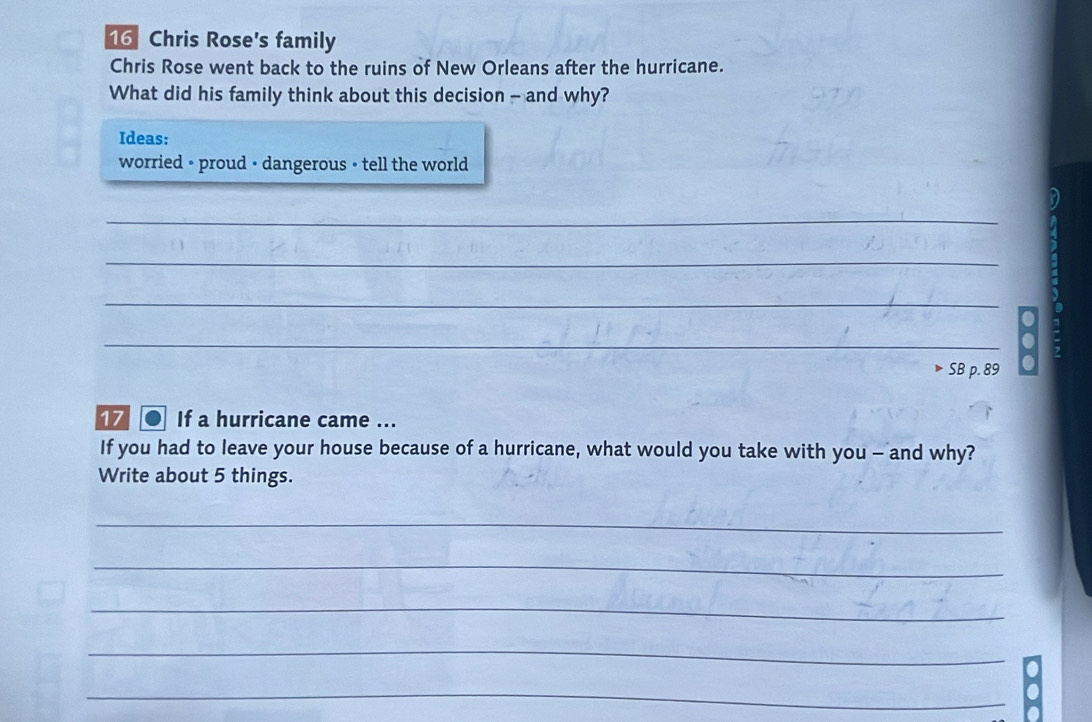 16 Chris Rose's family
Chris Rose went back to the ruins of New Orleans after the hurricane.
What did his family think about this decision – and why?
Ideas:
worried • proud • dangerous • tell the world
▸ SB p. 89
17 If a hurricane came ...
If you had to leave your house because of a hurricane, what would you take with you – and why?
Write about 5 things.